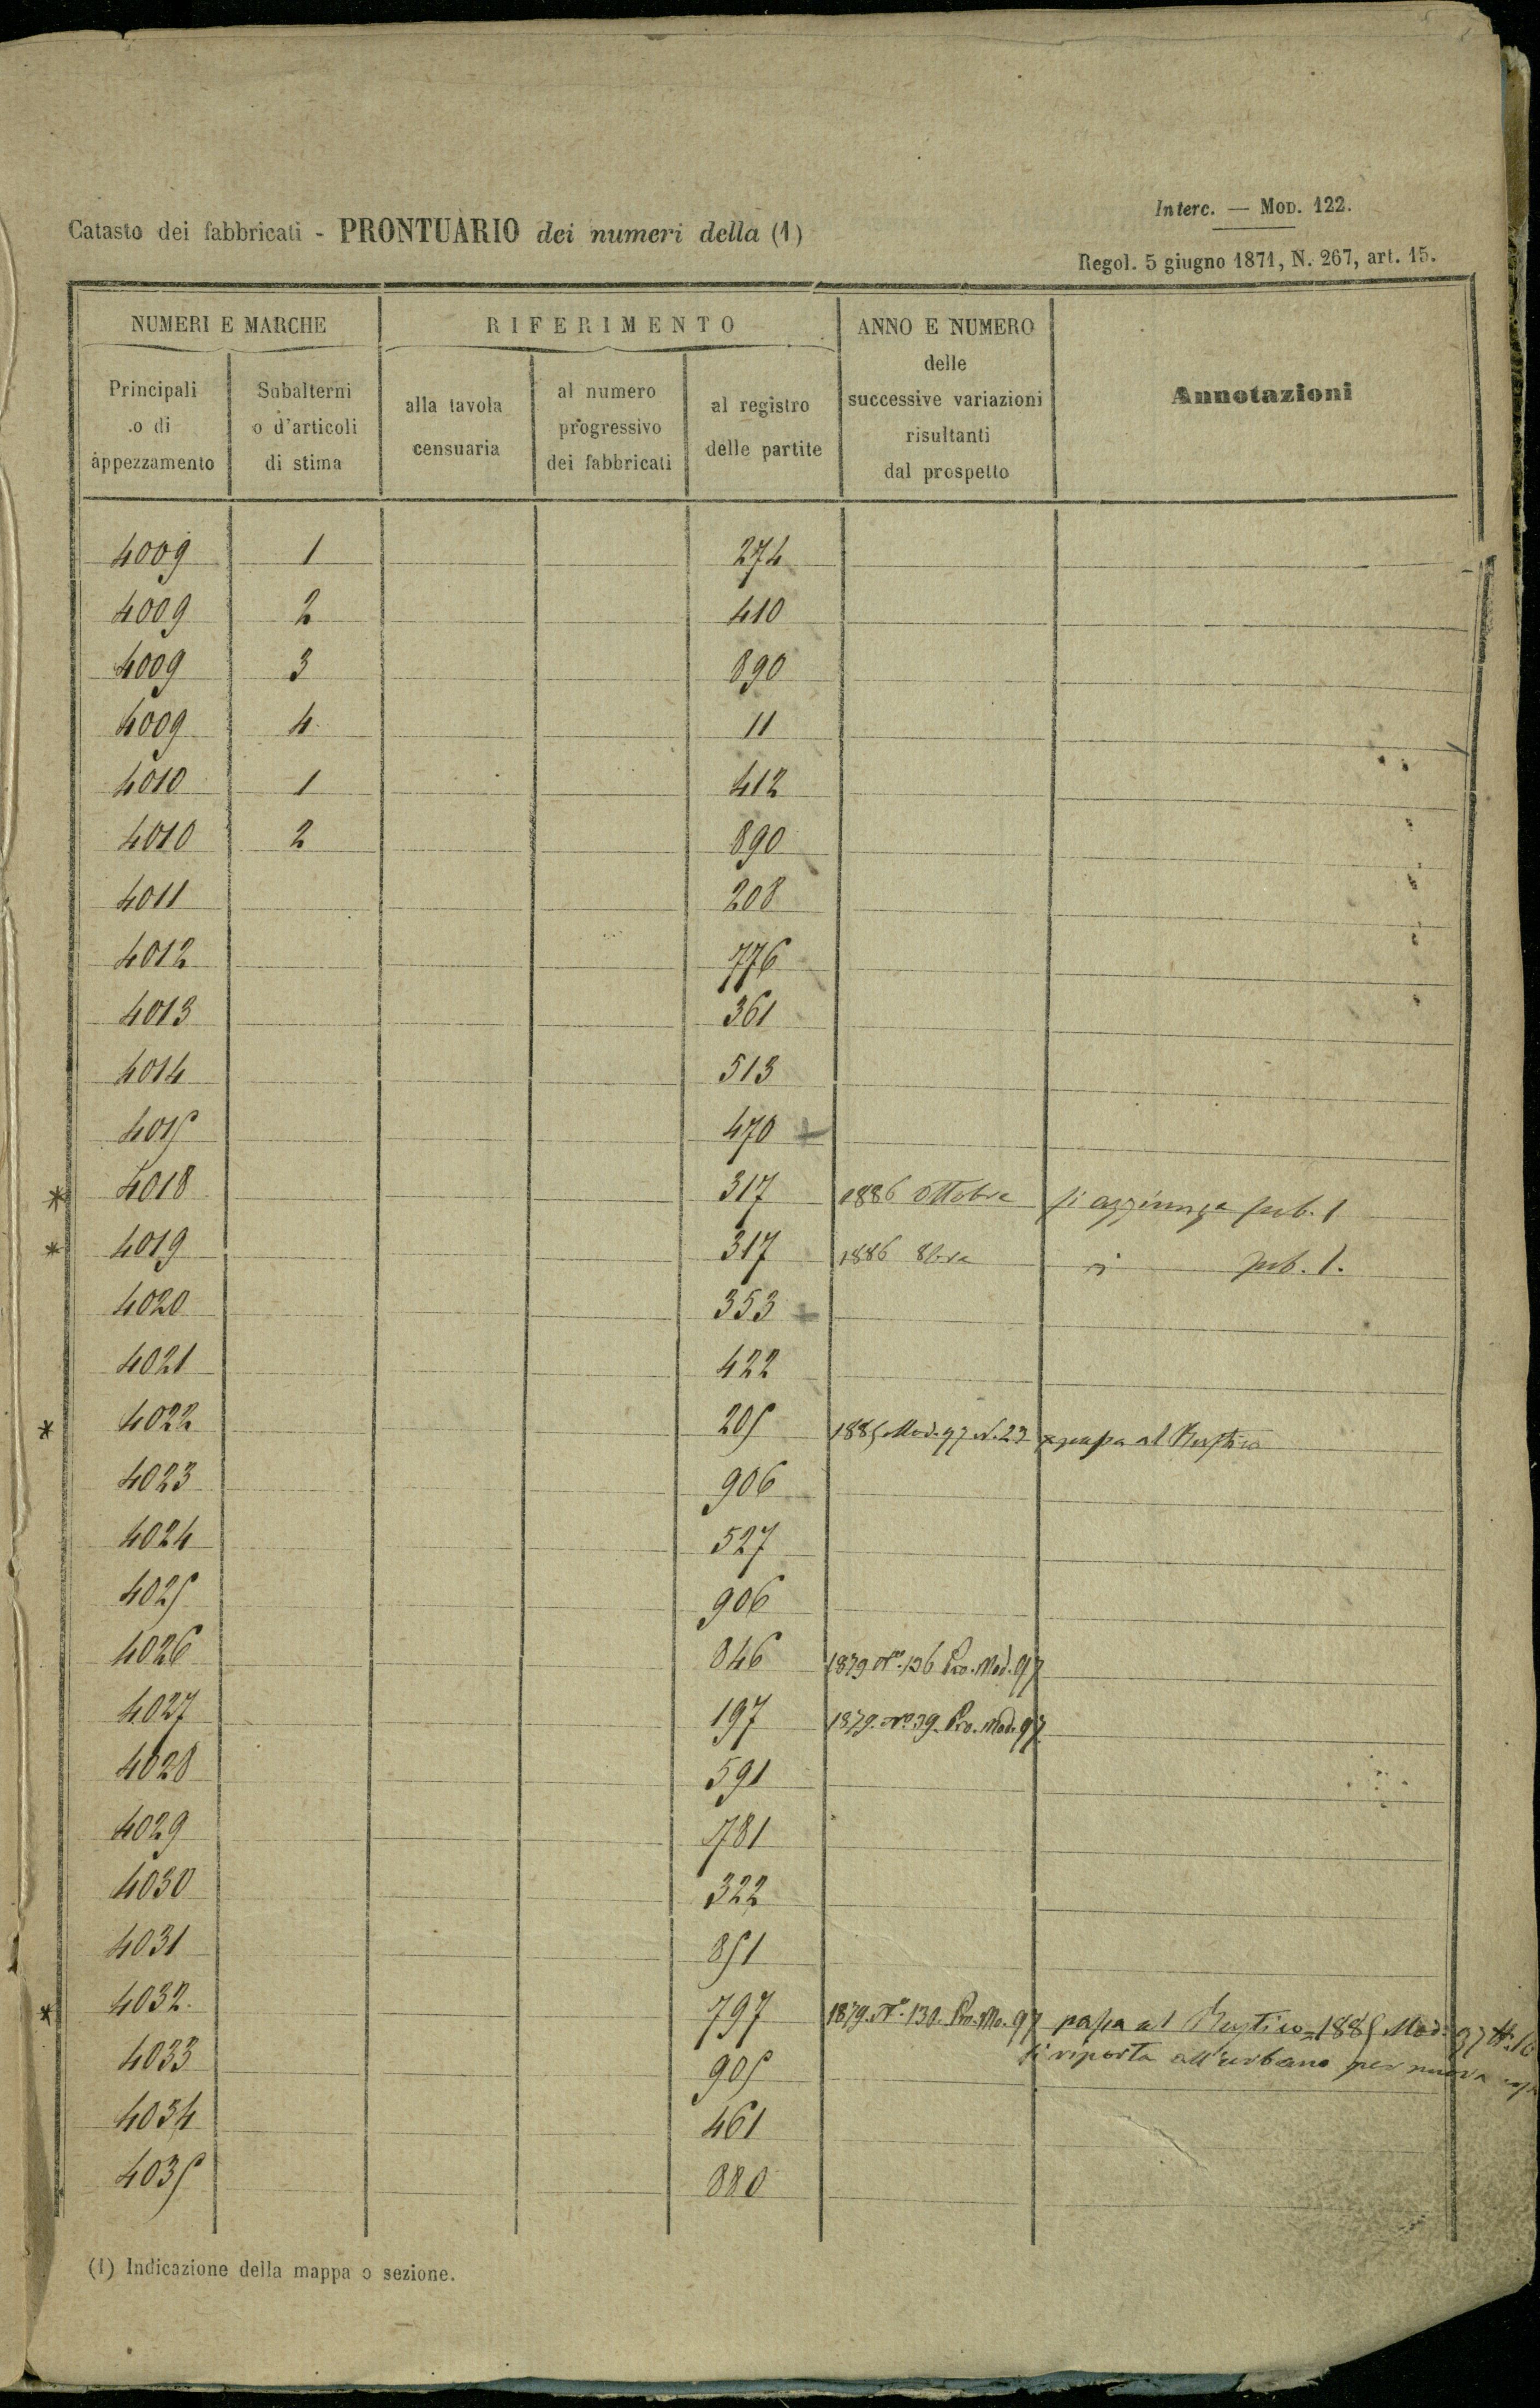 Interc. — Mod. 122.
Catasto dei fabbricati - PRONTUARIO dei numeri della (1)
Regol. 5 giugno 1871, N. 267, art. 15.
NUMERI E MARCHE RIFERIMENTO ANNO E NUMERO delle successive variazioni risultanti dal prospetto Annotazioni
Principali o di appezzamento Subalterni o d'articoli di stima alla tavola censuaria al numero progressivo dei fabbricati al registro delle partite
4009 1 274
4009 2 410
4009 3 890
4009 4 11
4010 1 412
4010 2 890
4011 208
4012 776
4013 361
4014 513
4015 470 +
* 4018 317 1886 Ottobre si aggiunga sub. 1
* 4019 317 1886 8bre sub. 1.
4020 353 +
4021 422
* 4022 205 1885 Mod. 97 N. 23 passa al Rustico
4023 906
4024 527
4025 906
4026 846 1879 No. 136 Pro. Mod. 97
4027 197 1879. No 39. Pro. Mod. 97
4028 591
4029 781
4030 322
4031 851
* 4032. 797 1879. No. 130. Pro. Mo. 97 passa al Rustico = 1885 Mod. 97
si riporta all'urbano per nuova
4033 905
4034 461
4035 880
(1) Indicazione della mappa o sezione.